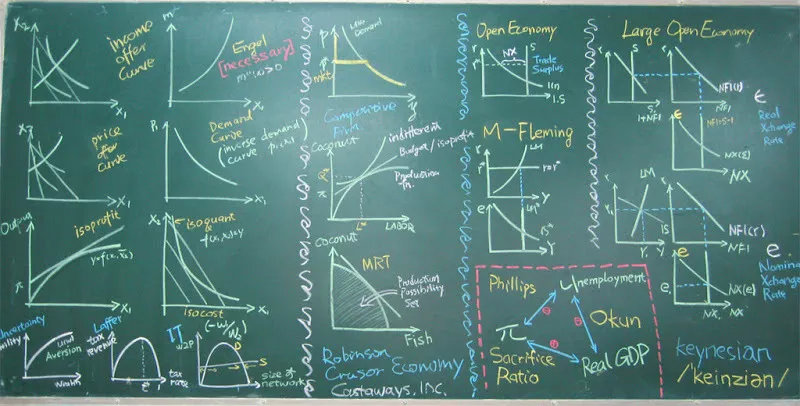 X₂
income
offer
curve
X₁
m
Engel
[necessary]
m''(x)>0
X₁
X₂
price
offer
curve
X₁
P₁
Demand
Curve
(inverse demand
curve
X₁
Output
isoprofit
y=f(x₁, x̄₂)
π
X₁
X₂
isoquant
f(x₁,x₂)=y
isocost
X₁
Uncertainty
Aversion
Wealth
Laffer
tax
revenue
t*
tax
rate
IT
w₂p
D
S
size of
network
P
Demand
mkt
y
Competitive
Firm
Coconut
indifferent
Budget/isoprofit
Production
fn.
π
L*
LABOR
Coconut
MRT
Production
Possibility
Set
Fish
Robinson
Crusor Economy
Castaways, INC.
Open Economy
r
r*
NX
S
Trade
Surplus
I(r)
I.S
M-Fleming
r
LM
r=r*
Y
e
LM*
IS*
Y
Large Open Economy
r
S
I+NFI
S
r
NFI(r)
NFI
ε
NFI=S-I
NX(ε)
NX
ε
Real
Xchange
Rate
r
r₁
LM
IS
Y₁
Y
r
NFI(r)
NFI
e
e₁
NX(e)
NX₁
NX
e
Nominal
Xchange
Rate
Phillips
Unemployment
π
Okun
Sacrifice
Ratio
Real GDP
keynesian
/keinziən/